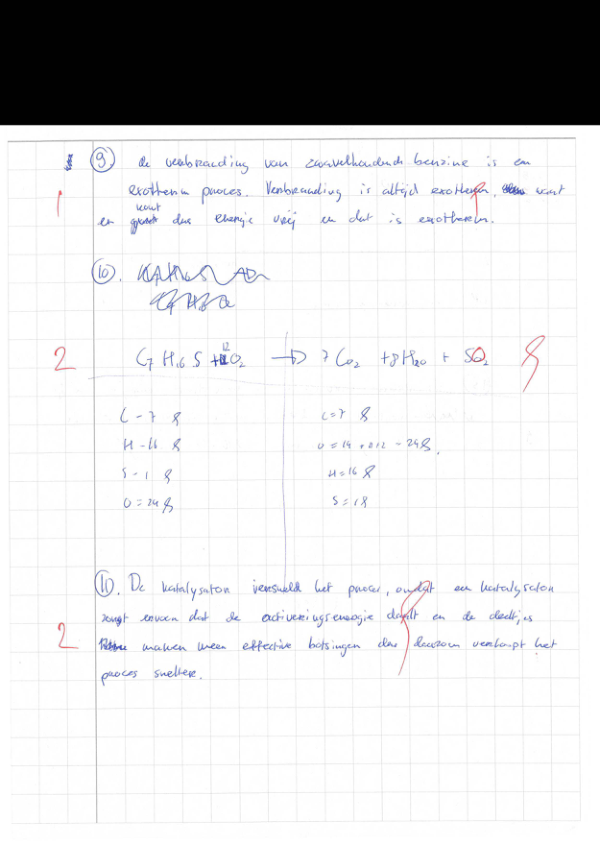 9) de verbranding van zwavelhoudende benzine is een
1 exotherm proces. Verbranding is altijd exotherm, want
er komt dus energie vrij en dat is exotherm.
10.
2 C7H16S + 12O2 → 7CO2 + 8H2O + SO2
C - 7 C = 7
H - 16 O = 14 + 8 + 2 - 24
S - 1 H = 16
O = 24 S = 1
11. De katalysator versneld het proces, omdat een katalysator
zorgt ervoor dat de activeringsenergie daalt en de deeltjes
2 maken meer effectieve botsingen dus daarom verloopt het
proces sneller.